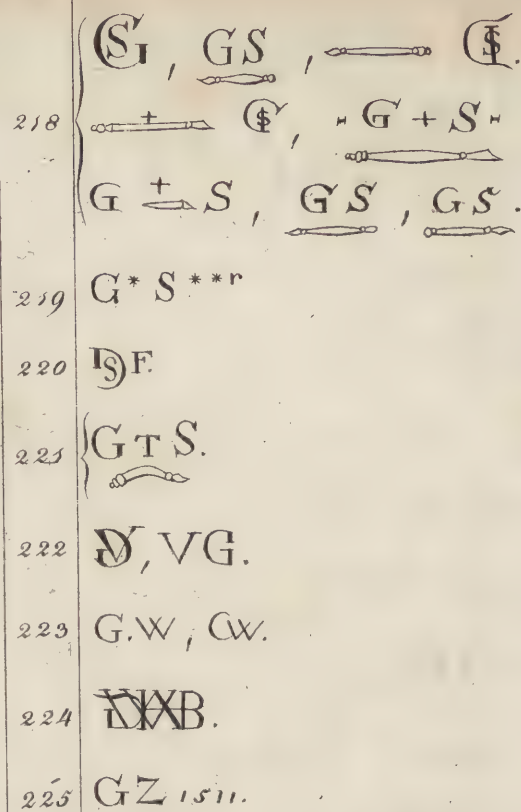 GS, GS, GS.
218 GS, G + S
G + S, GS, GS.
219 G* S***r
220 DS F.
221 G T S.
222 VG.
223 G.W, GW.
224 B.
225 GZ 1511.